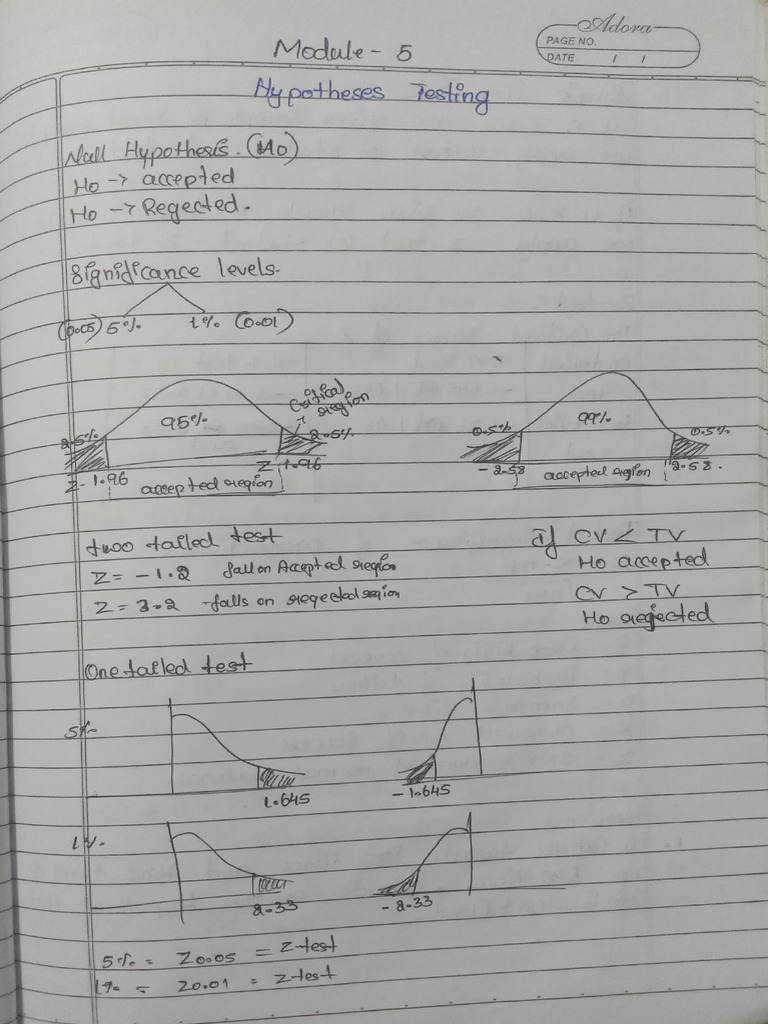 Adora
PAGE NO.
DATE / /
Module - 5
Hypotheses Testing
Null Hypothesis. (H0)
H0 -> accepted
H0 -> Regected.
Significance levels.
(0.05) 5% 1% (0.01)
2.5% 95% critical region 2.5%
Z -1.96 accepted region Z 1.96
0.5% 99% 0.5%
-2.58 accepted region 2.58.
two tailed test
Z = -1.2 fall on Accepted region
Z = 3.2 -falls on regected region
if CV < TV
H0 accepted
CV > TV
H0 regjected
One tailed test
5%
1.645 -1.645
1%.
2.33 -2.33
5% = Z0.05 = Z-test
1% = Z0.01 = Z-test